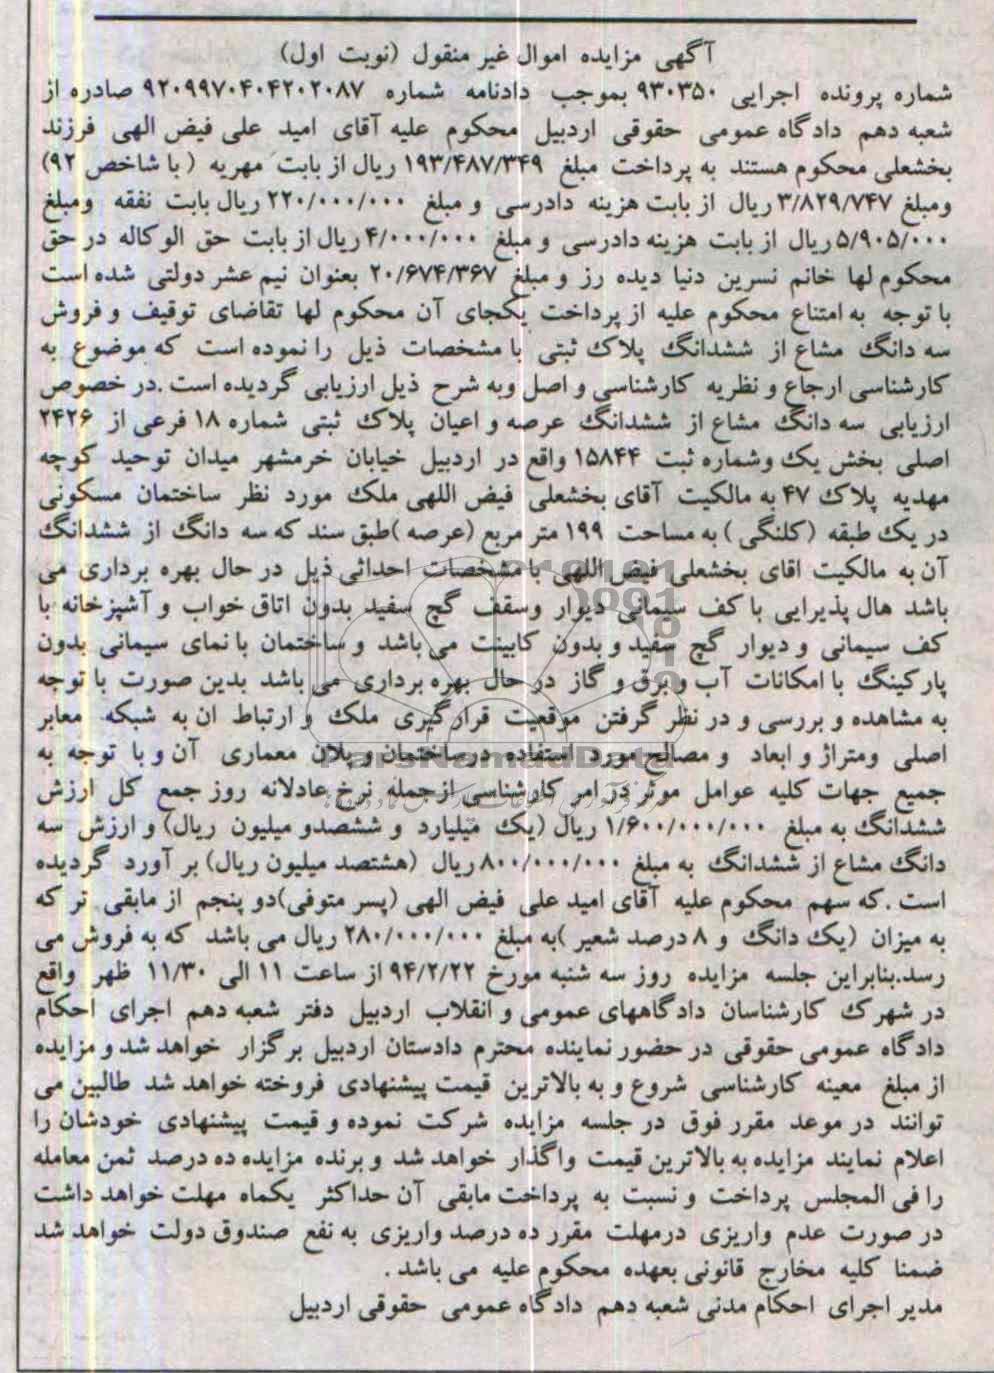 آگهی مزایده اموال غیر منقول (نوبت اول)
شماره پرونده اجرایی ۹۳۰۳۵۰ بموجب دادنامه شماره ۹۲۰۹۹۷۰۴۰۴۲۰۲۰۸۷ صادره از
شعبه دهم دادگاه عمومی حقوقی اردبیل محکوم علیه آقای امید علی فیض الهی فرزند
بخشعلی محکوم هستند به پرداخت مبلغ ۱۹۳/۴۸۷/۳۴۹ ریال از بابت مهریه (با شاخص ۹۲)
ومبلغ ۳/۸۲۹/۷۴۷ ریال از بابت هزینه دادرسی و مبلغ ۲۲۰/۰۰۰/۰۰۰ ریال بابت نفقه ومبلغ
۵/۹۰۵/۰۰۰ ریال از بابت هزینه دادرسی و مبلغ ۴/۰۰۰/۰۰۰ ریال از بابت حق الوکاله در حق
محکوم لها خانم نسرین دنیا دیده رز و مبلغ ۲۰/۶۷۴/۳۶۷ بعنوان نیم عشر دولتی شده است
با توجه به امتناع محکوم علیه از پرداخت یکجای آن محکوم لها تقاضای توقیف و فروش
سه دانگ مشاع از ششدانگ پلاک ثبتی با مشخصات ذیل را نموده است که موضوع به
کارشناسی ارجاع و نظریه کارشناسی و اصل وبه شرح ذیل ارزیابی گردیده است .در خصوص
ارزیابی سه دانگ مشاع از ششدانگ عرصه و اعیان پلاک ثبتی شماره ۱۸ فرعی از ۲۴۲۶
اصلی بخش یک وشماره ثبت ۱۵۸۴۴ واقع در اردبیل خیابان خرمشهر میدان توحید کوچه
مهدیه پلاک ۴۷ به مالکیت آقای بخشعلی فیض اللهی ملک مورد نظر ساختمان مسکونی
در یک طبقه (کلنگی ) به مساحت ۱۹۹ متر مربع (عرصه )طبق سند که سه دانگ از ششدانگ
آن به مالکیت اقای بخشعلی فیض اللهی با مشخصات احداثی ذیل در حال بهره برداری می
باشد هال پذیرایی با کف سیمانی دیوار وسقف گچ سفید بدون اتاق خواب و آشپزخانه با
کف سیمانی و دیوار گچ سفید و بدون کابینت می باشد و ساختمان با نمای سیمانی بدون
پارکینگ با امکانات آب و برق و گاز در حال بهره برداری می باشد بدین صورت با توجه
به مشاهده و بررسی و در نظر گرفتن موقعیت قرارگیری ملک و ارتباط ان به شبکه معابر
اصلی ومتراژ و ابعاد و مصالح مورد استفاده در ساختمان و پلان معماری آن و با توجه به
جمیع جهات کلیه عوامل موثر در امر کارشناسی ازجمله نرخ عادلانه روز جمع کل ارزش
ششدانگ به مبلغ ۱/۶۰۰/۰۰۰/۰۰۰ ریال (یک میلیارد و ششصدو میلیون ریال) و ارزش سه
دانگ مشاع از ششدانگ به مبلغ ۸۰۰/۰۰۰/۰۰۰ ریال (هشتصد میلیون ریال) بر آورد گردیده
است .که سهم محکوم علیه آقای امید علی فیض الهی (پسر متوفی)دو پنجم از مابقی تر که
به میزان (یک دانگ و ۸ درصد شعیر )به مبلغ ۲۸۰/۰۰۰/۰۰۰ ریال می باشد که به فروش می
رسد.بنابراین جلسه مزایده روز سه شنبه مورخ ۹۴/۲/۲۲ از ساعت ۱۱ الی ۱۱/۳۰ ظهر واقع
در شهرک کارشناسان دادگاههای عمومی و انقلاب اردبیل دفتر شعبه دهم اجرای احکام
دادگاه عمومی حقوقی در حضور نماینده محترم دادستان اردبیل برگزار خواهد شد و مزایده
از مبلغ معینه کارشناسی شروع و به بالاترین قیمت پیشنهادی فروخته خواهد شد طالبین می
توانند در موعد مقرر فوق در جلسه مزایده شرکت نموده و قیمت پیشنهادی خودشان را
اعلام نمایند مزایده به بالاترین قیمت واگذار خواهد شد و برنده مزایده ده درصد ثمن معامله
را فی المجلس پرداخت و نسبت به پرداخت مابقی آن حداکثر یکماه مهلت خواهد داشت
در صورت عدم واریزی درمهلت مقرر ده درصد واریزی به نفع صندوق دولت خواهد شد
ضمنا کلیه مخارج قانونی بعهده محکوم علیه می باشد .
مدیر اجرای احکام مدنی شعبه دهم دادگاه عمومی حقوقی اردبیل
ParsNamadData